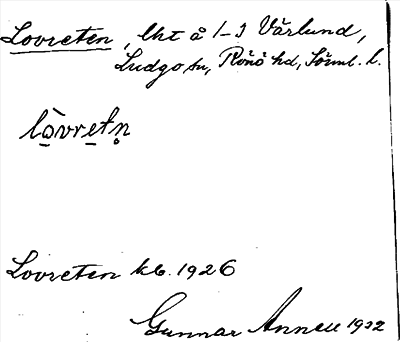 Lovreten, lht å 1-3 Vårlund,
Ludgo sn, Rönö hd, Sörml. l.
lòvretn̥
Lovreten kb. 1926
Gunnar Annell 1932